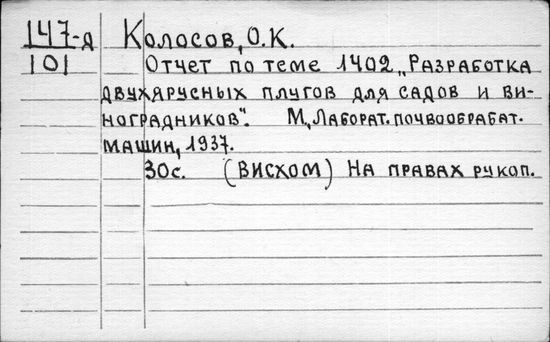 147-д Колосов, О.К.
101 Отчет по теме 1402 „Разработка
двухярусных плугов для садов и ви-
ноградников". М., Лаборат. почвообрабат.
машин, 1937.
30с. (ВИСХОМ) На правах рукоп.